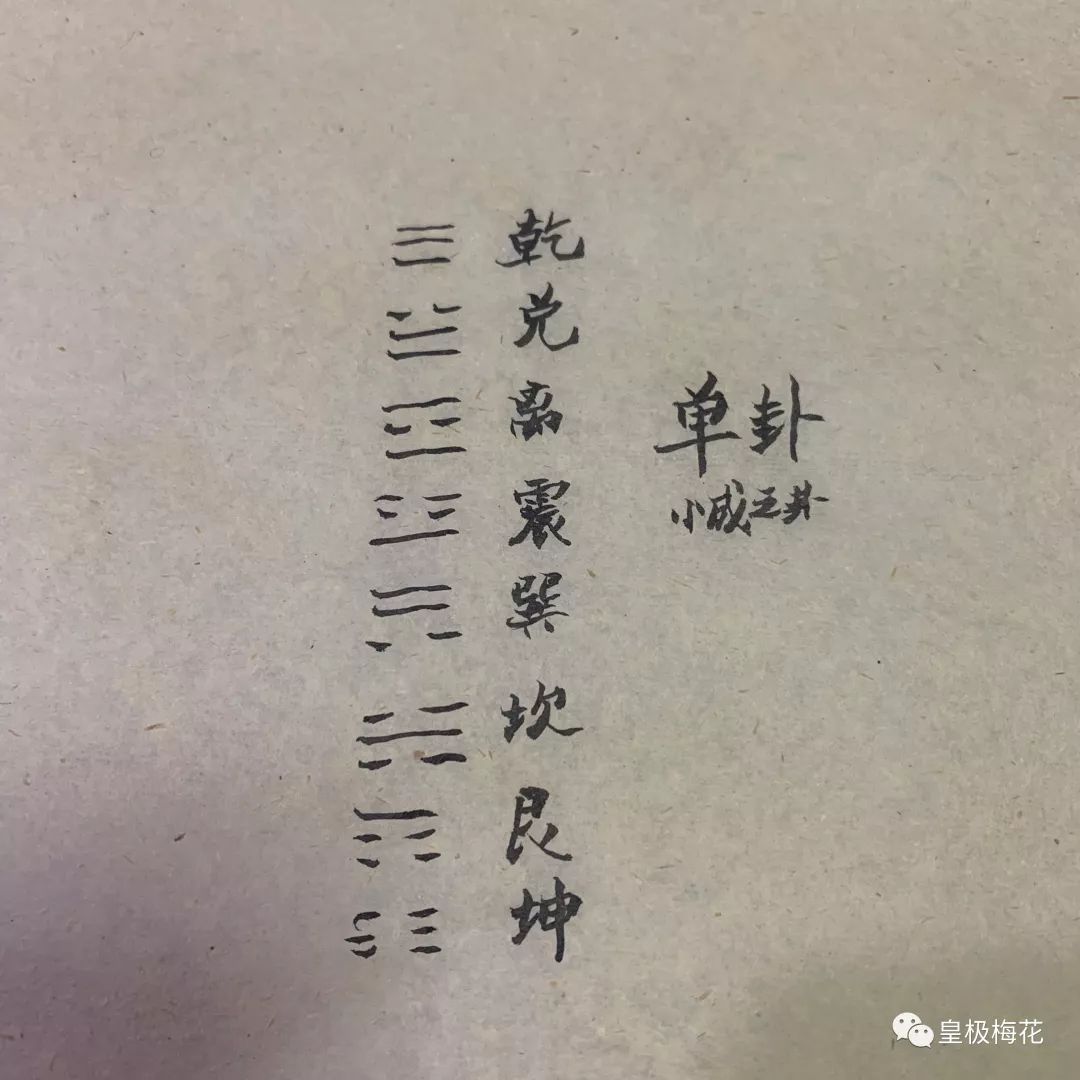 ☰ 乾
☱ 兑
☲ 离
☳ 震
☴ 巽
☵ 坎
☶ 艮
☷ 坤
单卦
小成之卦
皇极梅花